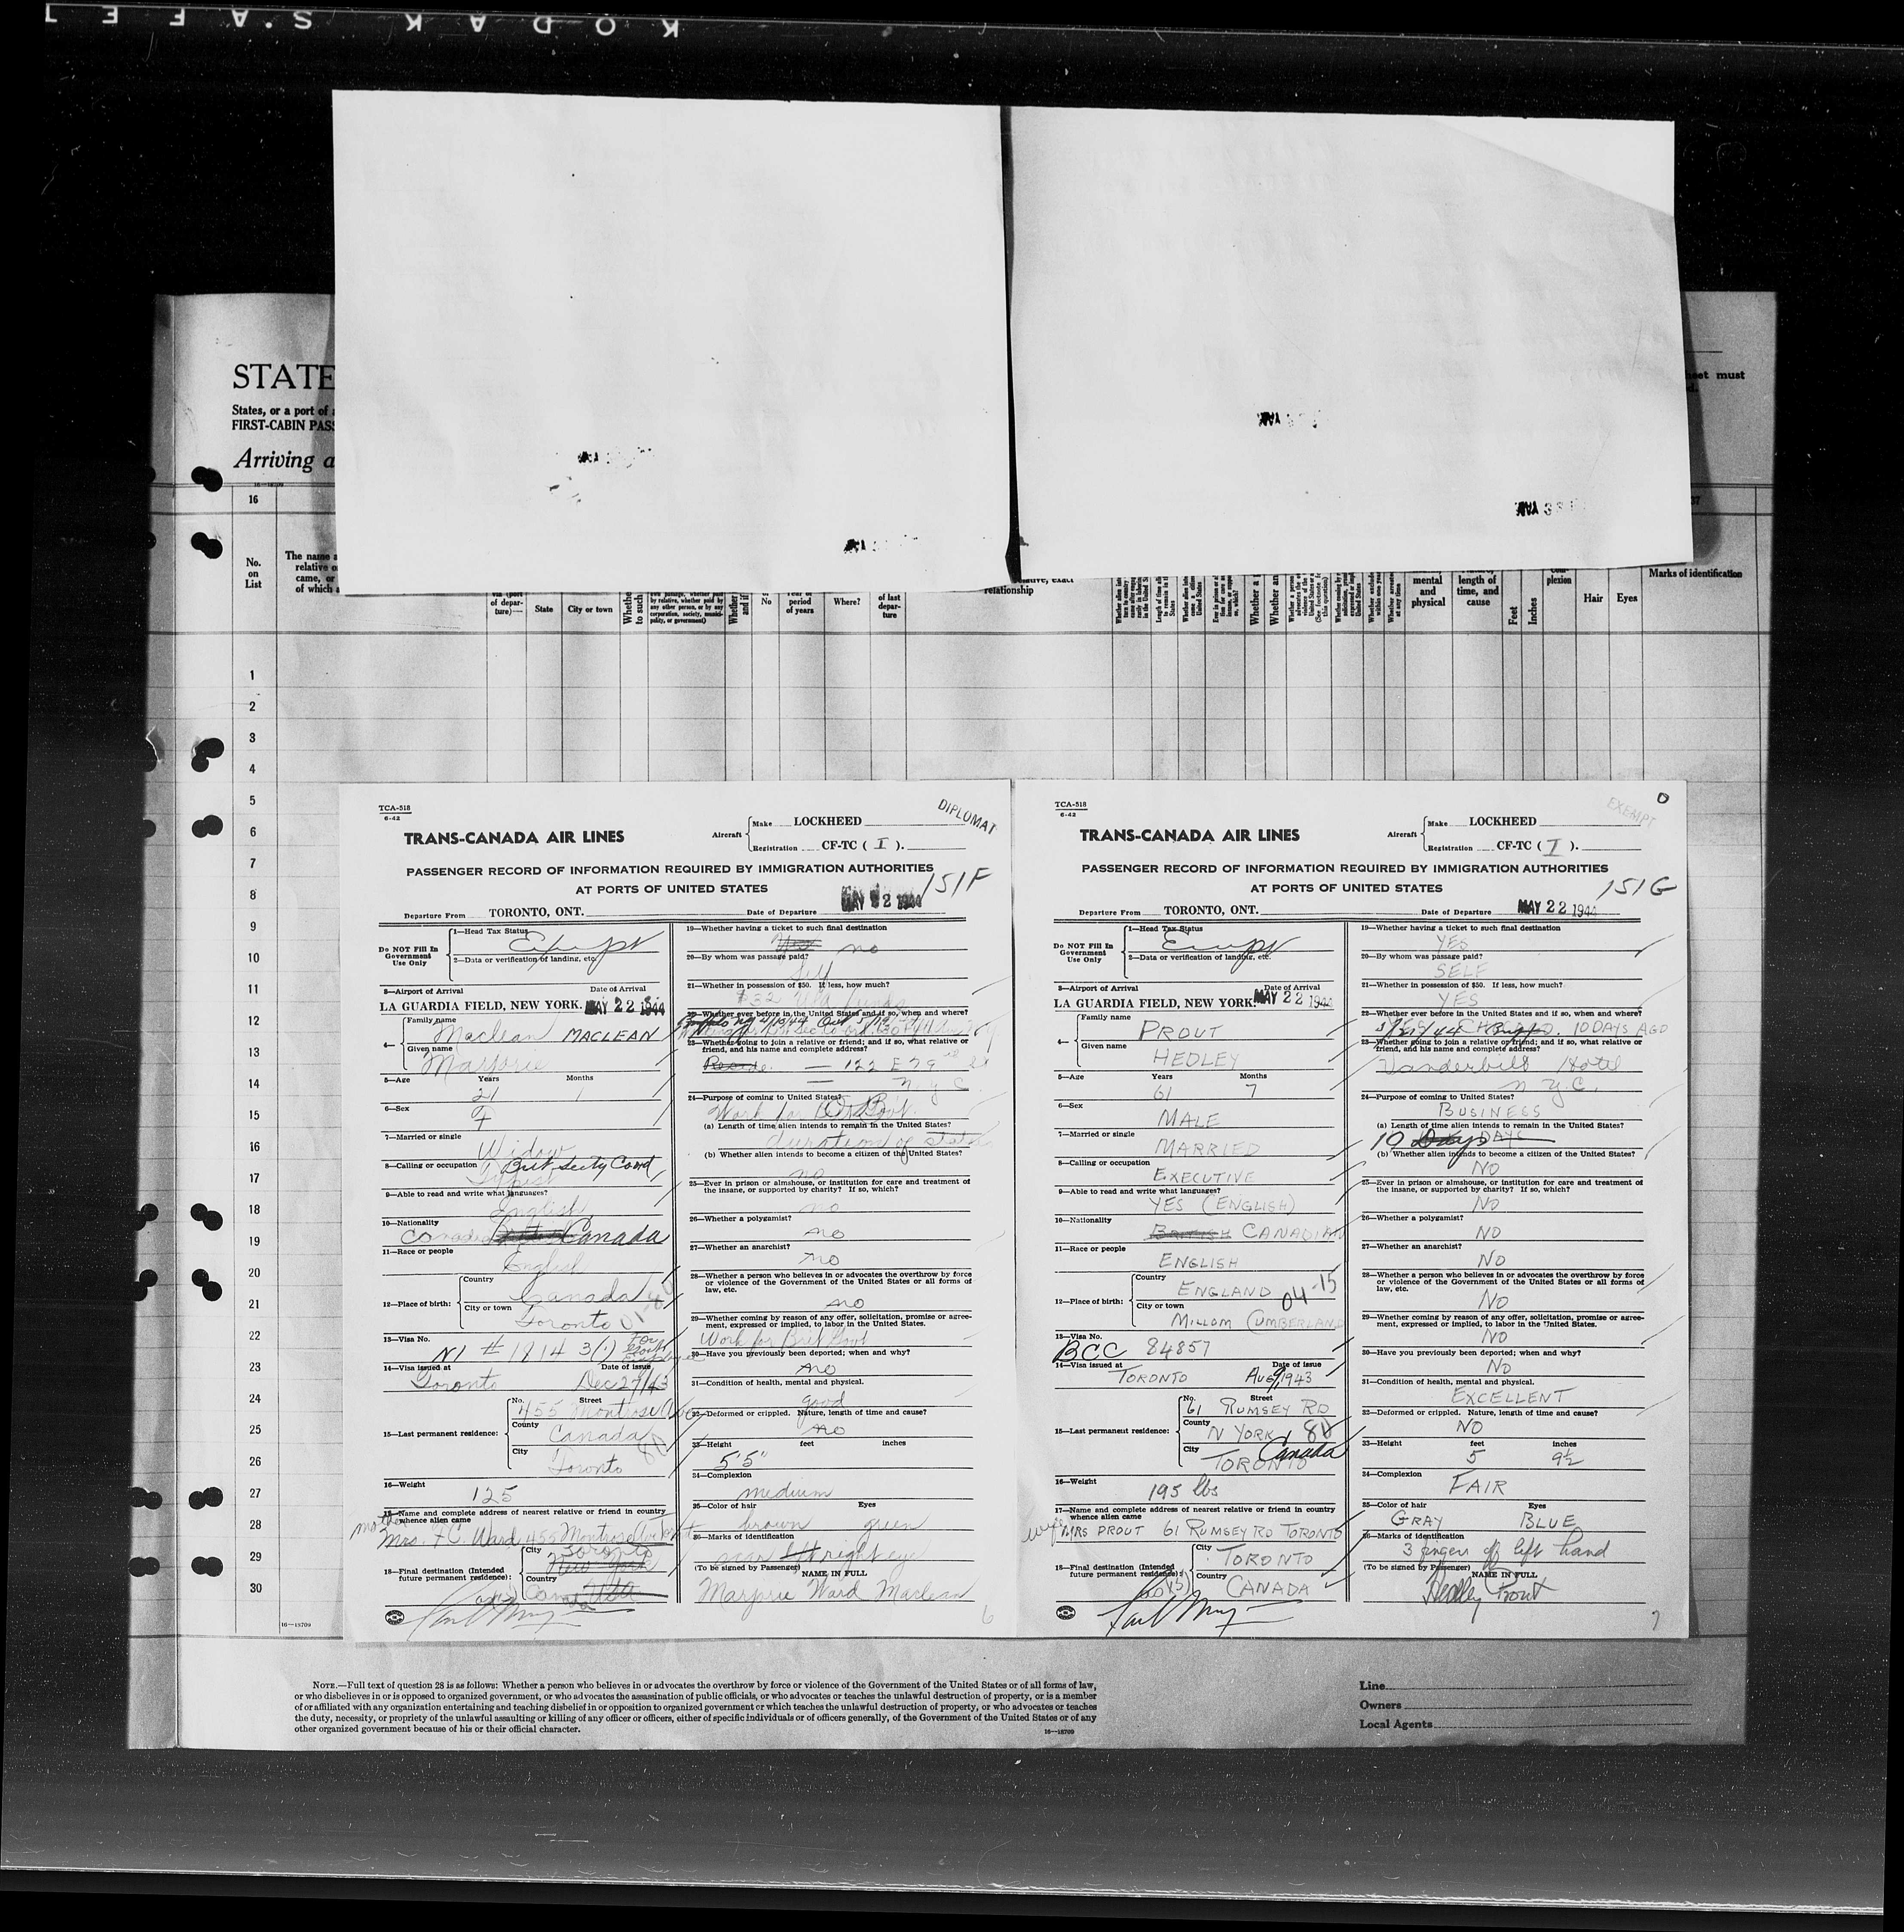 KODAK SAFE
STATE
States, or a port of
FIRST-CABIN PASS
Arriving a
heet must
16
37
No.
on
List
The name a
relative o
came, or
of which a
(port
of depar-
ture)—
State
City or town
Whethe
to such
by relative, whether paid by
any other person, or by any
corporation, society, munici-
pality, or government)
No
period
of years
Where?
of last
depar-
ture
relationship
mental
and
physical
length of
time, and
cause
Feet
Inches
plexion
Hair
Eyes
Marks of identification
1
2
3
4
5
6
7
8
9
10
11
12
13
14
15
16
17
18
19
20
21
22
23
24
25
26
27
28
29
30
16—18709
TCA-518
6-42
DIPLOMAT
TRANS-CANADA AIR LINES
Aircraft
Make LOCKHEED
Registration CF-TC ( I ).
PASSENGER RECORD OF INFORMATION REQUIRED BY IMMIGRATION AUTHORITIES
AT PORTS OF UNITED STATES
151F
Departure From TORONTO, ONT.
Date of Departure MAY 22 1944
Do NOT Fill In
Government
Use Only
1—Head Tax Status
Exempt
2—Data or verification of landing, etc.
3—Airport of Arrival
Date of Arrival
LA GUARDIA FIELD, NEW YORK. MAY 22 1944
4—
Family name
Maclean MACLEAN
Given name
Marjorie
5—Age Years Months
21
6—Sex
F
7—Married or single
Widow
8—Calling or occupation
Typist
9—Able to read and write what languages?
English
10—Nationality
Canada
11—Race or people
English
12—Place of birth:
Country
Canada
City or town
Toronto
13—Visa No.
# 1814 3(1)
14—Visa issued at Date of issue
Toronto Dec 27/43
15—Last permanent residence:
No. Street
455 Montrose Ave
County
Canada
City
Toronto
16—Weight
125
17—Name and complete address of nearest relative or friend in country
whence alien came
mother
Mrs. F C. Ward, 455 Montrose Ave
18—Final destination (Intended
future permanent residence):
City
Toronto
New York
Country
Canada USA
19—Whether having a ticket to such final destination
Yes no
20—By whom was passage paid?
Self
21—Whether in possession of $50. If less, how much?
$32
22—Whether ever before in the United States and if so, when and where?
23—Whether going to join a relative or friend; and if so, what relative or
friend, and his name and complete address?
122 E 79
N. Y. C.
24—Purpose of coming to United States?
Work for Brit Govt.
(a) Length of time alien intends to remain in the United States?
duration of
(b) Whether alien intends to become a citizen of the United States?
no
25—Ever in prison or almshouse, or institution for care and treatment of
the insane, or supported by charity? If so, which?
no
26—Whether a polygamist?
no
27—Whether an anarchist?
no
28—Whether a person who believes in or advocates the overthrow by force
or violence of the Government of the United States or all forms of
law, etc.
no
29—Whether coming by reason of any offer, solicitation, promise or agree-
ment, expressed or implied, to labor in the United States.
Work for Brit Govt
30—Have you previously been deported; when and why?
no
31—Condition of health, mental and physical.
good
32—Deformed or crippled. Nature, length of time and cause?
no
33—Height feet inches
5'5"
34—Complexion
medium
35—Color of hair Eyes
brown green
36—Marks of identification
scar left right eye
(To be signed by Passenger)
NAME IN FULL
Marjorie Ward Maclean
6
TCA-518
6-42
EXEMPT
TRANS-CANADA AIR LINES
Aircraft
Make LOCKHEED
Registration CF-TC ( I ).
PASSENGER RECORD OF INFORMATION REQUIRED BY IMMIGRATION AUTHORITIES
AT PORTS OF UNITED STATES
151G
Departure From TORONTO, ONT.
Date of Departure MAY 22 1944
Do NOT Fill In
Government
Use Only
1—Head Tax Status
Exempt
2—Data or verification of landing, etc.
3—Airport of Arrival
Date of Arrival
LA GUARDIA FIELD, NEW YORK. MAY 22 1944
4—
Family name
PROUT
Given name
HEDLEY
5—Age Years Months
61 7
6—Sex
MALE
7—Married or single
MARRIED
8—Calling or occupation
EXECUTIVE
9—Able to read and write what languages?
YES (ENGLISH)
10—Nationality
BRITISH CANADIAN
11—Race or people
ENGLISH
12—Place of birth:
Country
ENGLAND 04-15
City or town
MILLOM CUMBERLAND
13—Visa No.
BCC 84857
14—Visa issued at Date of issue
TORONTO AUG 9, 1943
15—Last permanent residence:
No. Street
61 RUMSEY RD
County
N YORK 80
City
TORONTO Canada
16—Weight
195 lbs
17—Name and complete address of nearest relative or friend in country
whence alien came
wife
MRS PROUT 61 RUMSEY RD TORONTO
18—Final destination (Intended
future permanent residence):
City
TORONTO
Country
CANADA
19—Whether having a ticket to such final destination
YES
20—By whom was passage paid?
SELF
21—Whether in possession of $50. If less, how much?
YES
22—Whether ever before in the United States and if so, when and where?
10 DAYS AGO
23—Whether going to join a relative or friend; and if so, what relative or
friend, and his name and complete address?
Vanderbilt Hotel
N. Y. C.
24—Purpose of coming to United States?
BUSINESS
(a) Length of time alien intends to remain in the United States?
10 Days DAYS
(b) Whether alien intends to become a citizen of the United States?
NO
25—Ever in prison or almshouse, or institution for care and treatment of
the insane, or supported by charity? If so, which?
NO
26—Whether a polygamist?
NO
27—Whether an anarchist?
NO
28—Whether a person who believes in or advocates the overthrow by force
or violence of the Government of the United States or all forms of
law, etc.
NO
29—Whether coming by reason of any offer, solicitation, promise or agree-
ment, expressed or implied, to labor in the United States.
NO
30—Have you previously been deported; when and why?
NO
31—Condition of health, mental and physical.
EXCELLENT
32—Deformed or crippled. Nature, length of time and cause?
NO
33—Height feet inches
5 9½
34—Complexion
FAIR
35—Color of hair Eyes
GRAY BLUE
36—Marks of identification
3 fingers off left hand
(To be signed by Passenger)
NAME IN FULL
Hedley Prout
7
NOTE.—Full text of question 28 is as follows: Whether a person who believes in or advocates the overthrow by force or violence of the Government of the United States or of all forms of law,
or who disbelieves in or is opposed to organized government, or who advocates the assassination of public officials, or who advocates or teaches the unlawful destruction of property, or is a member
of or affiliated with any organization entertaining and teaching disbelief in or opposition to organized government or which teaches the unlawful destruction of property, or who advocates or teaches
the duty, necessity, or propriety of the unlawful assaulting or killing of any officer or officers, either of specific individuals or of officers generally, of the Government of the United States or of any
other organized government because of his or their official character.
16—18709
Line
Owners
Local Agents